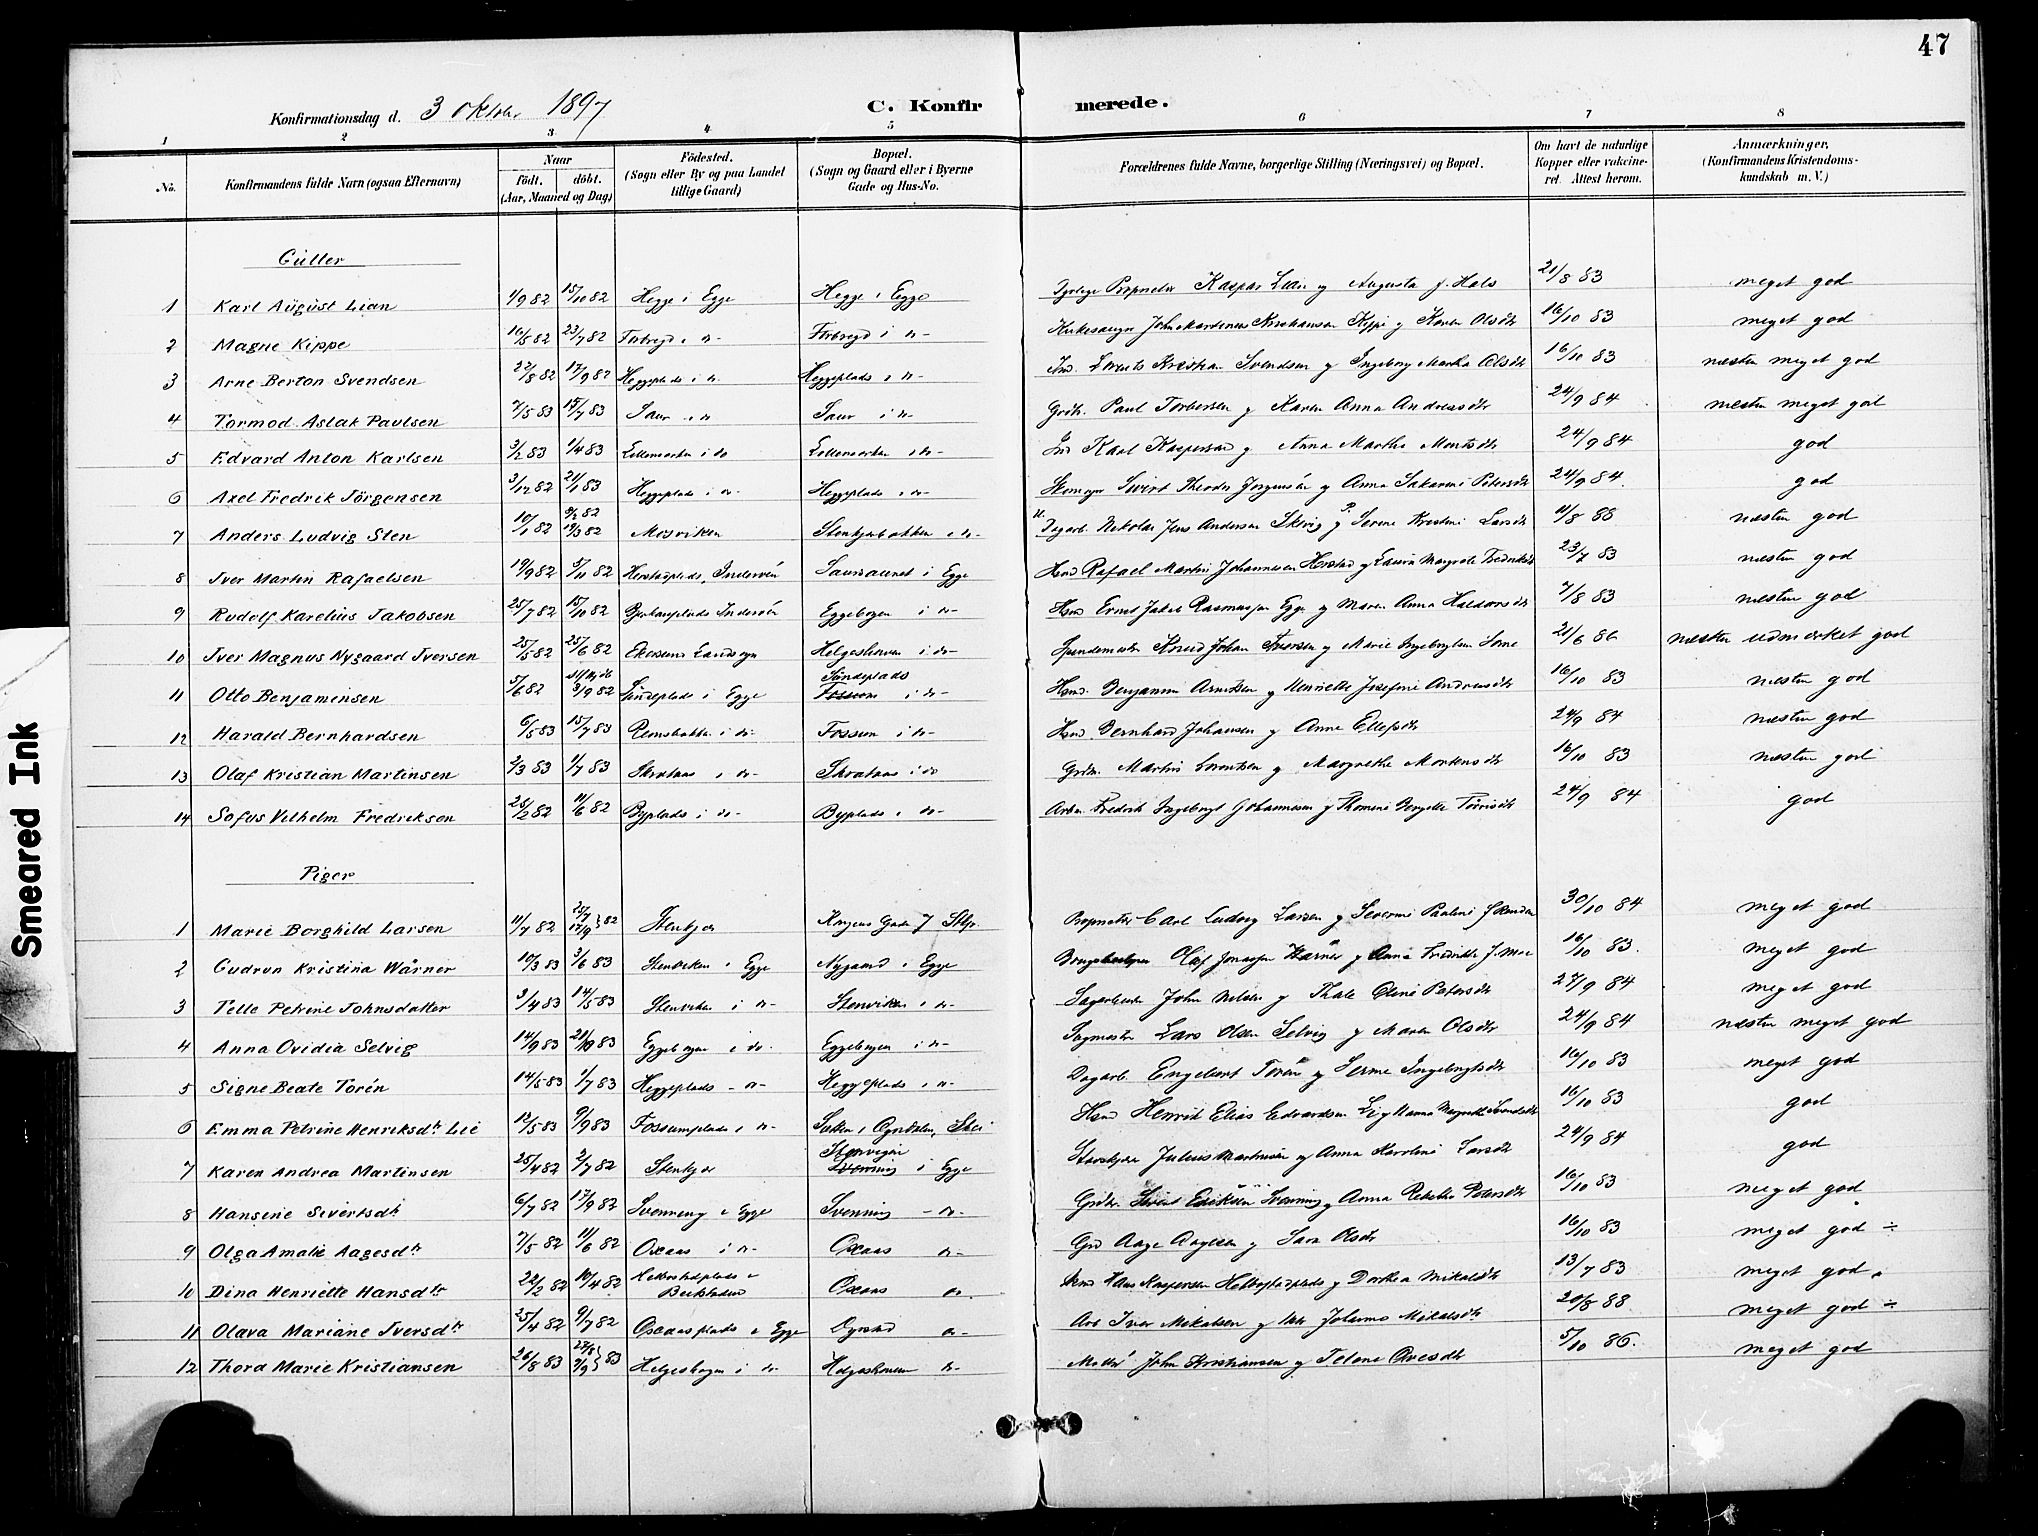 47
Konfirmationsdag d. 3 Oktober 1897
C. Konfirmerede.
1 2 3 4 5 6 7 8
No.
Konfirmandens fulde Navn (ogsaa Efternavn)
Naar
födt. döbt.
(Aar, Maaned og Dag)
Födested.
(Sogn eller By og paa Landet
tillige Gaard)
Bopæl.
(Sogn og Gaard eller i Byerne
Gade og Hus-No.
Forældrenes fulde Navne, borgerlige Stilling (Næringsvei) og Bopæl.
Om havt de naturlige
Kopper eller vakcine-
ret. Attest herom.
Anmærkninger,
(Konfirmandens Kristendoms-
kundskab m. V.)
Gutter
1 Karl August Lian 1/9 82 15/10 82 Hegge i Egge Hegge i Egge Kaspar Lian og Augusta f. Hals 21/8 83 meget god
2 Magne Kippe 16/5 82 23/7 82 Forbregd i do- Forbregd i do- Kirkesanger John Mardenus Kristiansen Kippe og Karen Olsdtr 16/10 83 meget god
3 Arne Berton Svendsen 22/8 82 17/9 82 Heggeplads i do. Heggeplads i do- Ind. Lorents Kristian Svendsen og Ingeborg Martha Olsdtr 16/10 83 næsten meget god
4 Tormod Aslak Paulsen 7/5 83 15/7 83 Saur i do Saur i do- Grdbr. Paul Torbersen og Karen Anna Andreasdtr 24/9 84 næsten meget god
5 Edvard Anton Karlsen 3/2 83 1/4 83 Lillemarken i do Lillemarken i do- Ind Karl Kaspersen og Anna Martha Mortsdtr 24/9 84 god
6 Axel Fredrik Jörgensen 3/12 82 21/1 83 Heggeplads i do- Heggeplads i do- Sivert Theodor Jörgensen og Anna Sakarine Petersdtr 24/9 84. god
7 Anders Ludvig Sten 10/1 82 5/2 82 19/3 82 Mosviken Stenkjerbakken i do- U. Dagarb. Nikolai Jens Andersen Skevig P. Serene Kristine Larsdtr 11/8 88 næsten god
8 Iver Martin Rafaelsen 19/9 82 5/11 82 Herstadplads, Inderöen Saursaunet i Egge Hsmd Rafael Martin Johannesen Herstad og Laura Margrete Fredriksdtr 23/7 83 næsten god
9 Rudolf Karelius Jakobsen 25/7 82 15/10 82 Inderöen Eggebogen i do- Hsmd Ernst Jakob Rasmussen Egge og Maren Anna Haldorsdtr 7/8 83 næsten god
10 Iver Magnus Nygaard Iversen 25/5 82 25/6 82 Ekersund Landsogn Helgeshaven i do- Knud Johan Iversen og Marie Ingeborg 21/6 86 næsten udmerket god
11 Otto Benjaminsen 5/6 82 3/9 82 Sundeplads i Egge Sundeplads Fossum i do- Hsmd. Benjamin Arntsen og Henriette Josefine Andreasdtr 16/10 83 næsten god
12 Harald Bernhardsen 6/5 83 15/7 83 Remsbakken i do- Fossum i do- Hsmd. Bernhard Johansen og Anne Ellefsdtr 24/9 84 næsten god
13 Olaf Kristian Martinsen 2/3 83 1/7 83 Skrataas i do- Skrataas i do Grdbr. Martin Lorentsen og Margrethe Mortensdtr 16/10 83 næsten god
14 Sofus Vilhelm Fredriksen 25/2 82 11/6 82 Byplads i do- Byplads i do- Arb. Fredrik Ingebrigt Johannesen og Thomine Bergitte Torrisdtr 24/9 84 god
Piger
1 Marie Borghild Larsen 11/7 82 25/7 17/9 } 82 Stenkjer Kongens Gade 7 Stkjr. Proprietær Carl Ludvig Larsen og Severine Pauline f. 30/10 84 meget god
2 Gudrun Kristina Wårner 10/3 83 3/6 83 Stenviken i Egge Nygaard i Egge Olaf Jonassen Wårner og Anna Fredrikke f. Moe 16/10 83. meget god
3 Telle Petrine Johnsdatter 3/4 83 14/5 83 Stenviken i do- Stenviken i do- Sagarbeider John Nilsen og Thale Oline Petersdtr 24/9 84 meget god
4 Anna Ovidia Selvig 14/9 83 21/10 83 Eggebogen i do. Eggebogen i do- Sagmester Lars Olsen Selvig og Maren Olsdtr 24/9 84 næsten meget god
5 Signe Beate Torén 14/5 83 1/7 83 Heggeplads - do- Heggeplads i do- Dagarb. Engelbert Torén og Serine Ingebrigtsdtr 16/10 83 meget god
6 Emma Petrine Henriksdtr Lie 12/5 83 9/9 83 Fossumplads i do- Hsmd Henrik Elias Edvardsen Li og Hanna Margrethe Svendsdtr 16/10 83 god
7 Karen Andrea Martinsen 25/4 82 2/7 82 Stenkjer Stenvigen Svenning i Egge Julius Martinsen og Anna Karoline Larsdtr 24/9 84 god
8 Hansine Sivertsdtr 6/7 82 17/9 82 Svenning i Egge Svenning - do- Grdbr. Sivert Eriksen Svenning og Anna Rebekka Petersdtr 16/10 83 meget god
9 Olga Amalie Aagesdtr 7/5 82 11/6 82 Oxaas i do- Oxaas do- Grd Aage Aagesen og Sara Olsdtr 16/10 83 meget god ÷
10 Dina Henriette Hansdtr 22/2 82 10/4 82 Helbostadplads i Beitstaden Oxaas do. Hsmd Hans Kaspersen Helbostadplads og Dorthea Mikalsdtr 13/7 83 meget god
11 Olava Mariane Iversdtr 25/4 82 9/7 82 Oxaasplads i Egge Dyrstad do- Arb Iver Mikalsen og Johanna Mikalsdtr 20/8 88. meget god ÷
12 Thora Marie Kristiansen 26/8 83 27/8 9/9 } 83 Helgeshagen i do- Helgeshaven do- Möller John Kristiansen og Jelene Ovesdtr 5/10 86. meget god
Smeared Ink